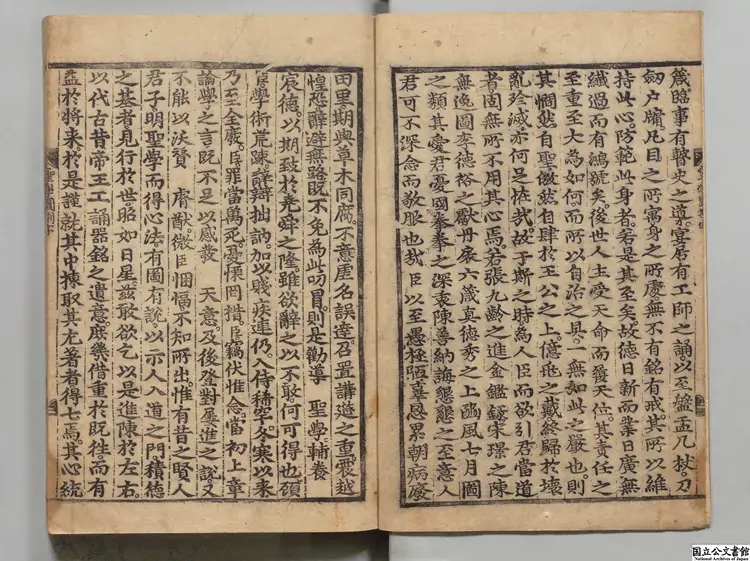 箴。臨事有瞽史之道。宴居有工師之誦以至盤盂几杖。刀
劒户牖。凡目之所寓身之所處。無不有銘有戒。其所以維
持此心。防範此身者。若是其至矣。故德日新而業日廣無
纖過而有鴻號矣。後世人主受天命而履天位。其責任之
至重至大爲如何而所以自治之具。一無如此之嚴也。則
其憪然自聖傲然自肆於王公之上億兆之戴終歸於壞
亂殄滅亦何足怪哉。故于斯之時爲人臣而欲引君當道
者固無所不用其心焉若張九齡之進金鑑錄宋璟之陳
無逸圖李德裕之獻丹扆六箴真德秀之上豳風七月圖
之類其愛君憂國拳拳之深衷陳善納誨懇懇之至意人
君可不深念而敬服也哉 臣以至愚極陋辜恩累朝病廢
田里期與草木同腐。不意虛名誤達。召置講筵之重。震越
惶恐辭避無路既不免為此叨冒。則是勸導 聖學。輔養
宸德。以期致於堯舜之隆。雖欲辭之以不敢何可得也顧
臣學術荒疎辭辯拙訥。加以賤疾連仍。入侍稀罕。冬寒以來
乃至全廢。臣罪當萬死。憂慄罔措。臣竊伏惟念。當初上章
論學之言既不足以感發 天意。及後登對屢進之說。又
不能以沃贊 睿猷。微臣悃愊不知所出。惟有昔之賢人
君子明聖學而得心法。有圖有說。以示人入道之門積德
之基者見行於世。昭如日星。茲敢欲乞以是進陳於左右。
以代古昔帝王工誦器銘之遺意。庶幾借重於既往。而有
益於將来。於是謹就其中揀取其尤著者得七焉。其心統
国立公文書館
National Archives of Japan